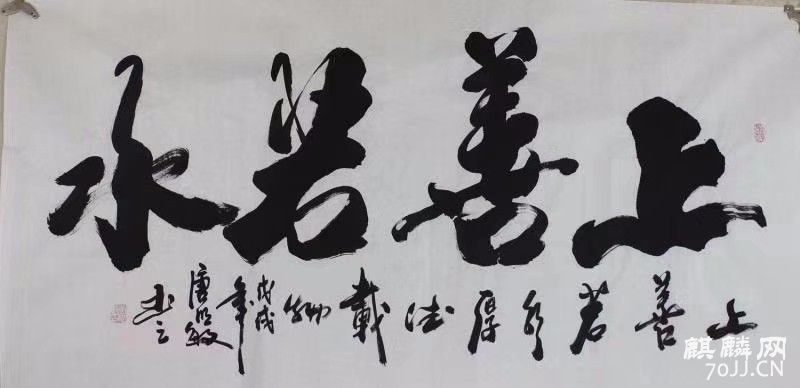 上善若水
上善若水厚德載物戊戌年唐明敏書之
麒麟网
70JJ.CN